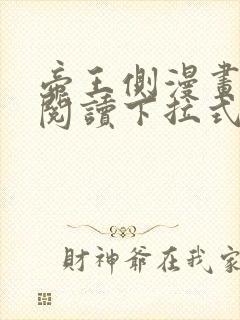 帝王側漫畫
閱讀下拉式
財神爺在我家